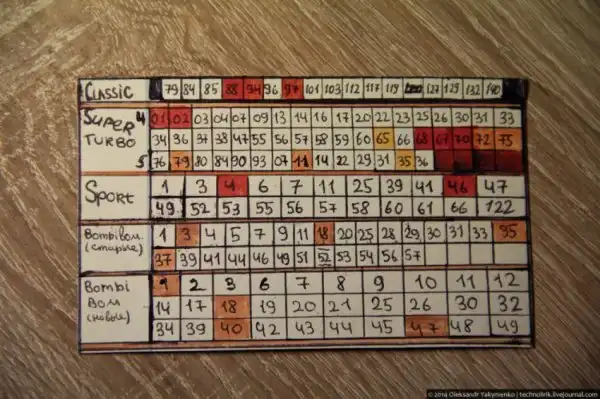 Classic 79 84 85 88 94 96 97 101 103 112 117 119 127 129 132 140
Super 4 01 02 03 04 07 09 13 14 16 17 20 22 23 25 26 30 31 33
Turbo 34 36 37 38 47 55 56 57 58 59 60 65 66 68 67 70 72 75
5 76 79 80 84 90 93 07 11 14 22 29 31 35 36
Sport 1 3 4 6 7 11 25 39 41 46 47
49 52 53 55 56 57 58 60 61 66 122
Bombibom 1 3 4 5 7 9 11 18 20 25 28 29 30 31 33 35
(старые) 37 39 41 44 46 49 51 52 53 54 56 57
Bombi 1 2 3 6 7 8 9 10 11 12
Bom 14 17 18 19 20 21 25 26 30 32
(новые) 34 39 40 42 43 44 45 47 48 49
© 2014 Oleksandr Yakymenko | technolirik.livejournal.com